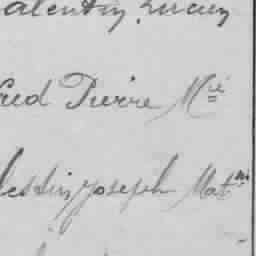 alentin, Lucien
red Pierre M^ie
lestin Joseph Mat^in